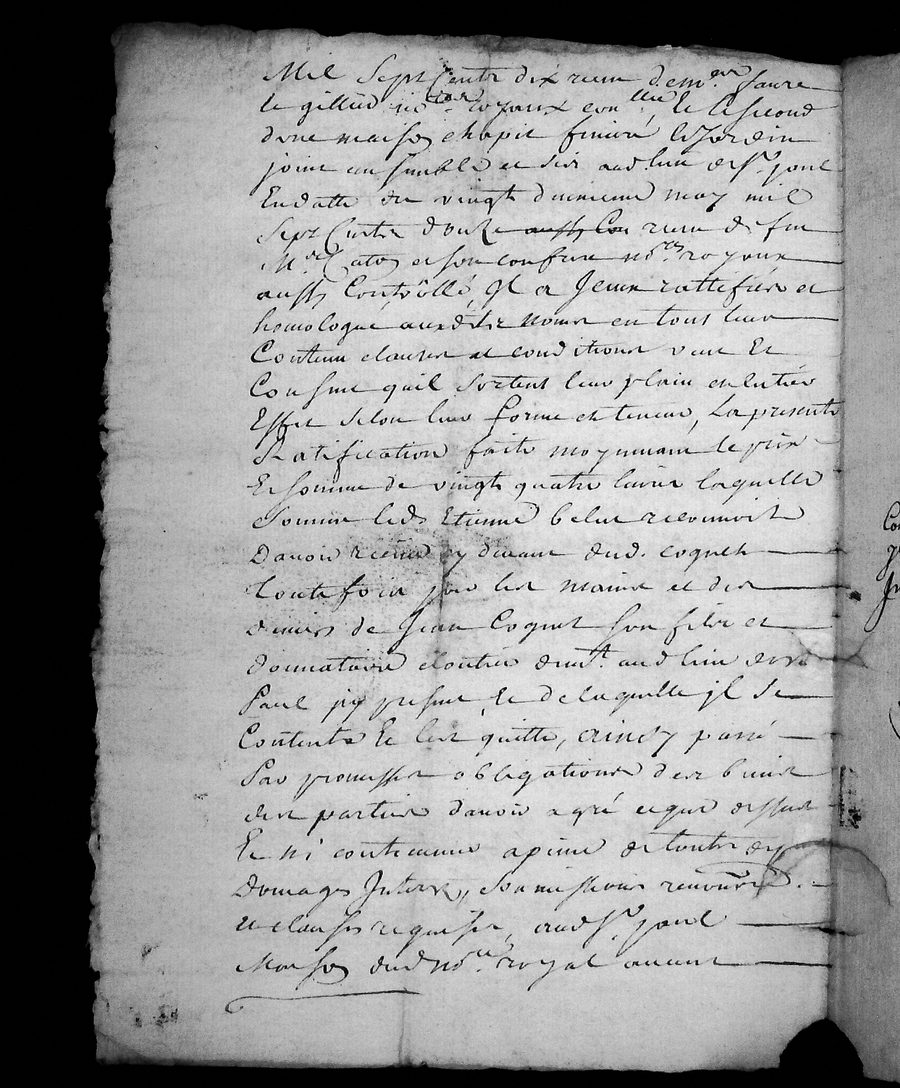 Mil Sept Cents dix receu de m.es faure
le gillier no.res royaux con.llé & le second
dune maison chapit finiere & Jardin
joint ensemble et sis aud. lieu de S.t paul
En datte du vingt deuxieme may mil
Sept Cents douze aussy Con receu de feu
M.re Catos et son confrere no.res royaux
aussy Controllé, Il a Iceux rattifiés et
homologué auxdits noms en tous leur
Contenu clauses et conditions veut Et
Consent quil sortent leur plain en entier
Effet selon leur forme et teneur, La presente
Ratification faite moyennant le prix
Et somme de vingt quatre livres laquelle
Somme led. Etienne belus reconnoit
Davoir receue cy devant dud. coquet
toutefois par les mains et des
deniers de Jean Coquet son fils et
donnataire cloutier demt. aud lieu de st
Paul icy present, & de laquelle il se
Contente & les quitte, Ainsy passé
Par promesses obligations des biens
des parties davoir agré ce que dessus
Et ny contrevenir a peine de toutes des
Domages Interets, soumissions renonces.
et clauses requises, aud S.t paul
Maison dud no.re royal avant